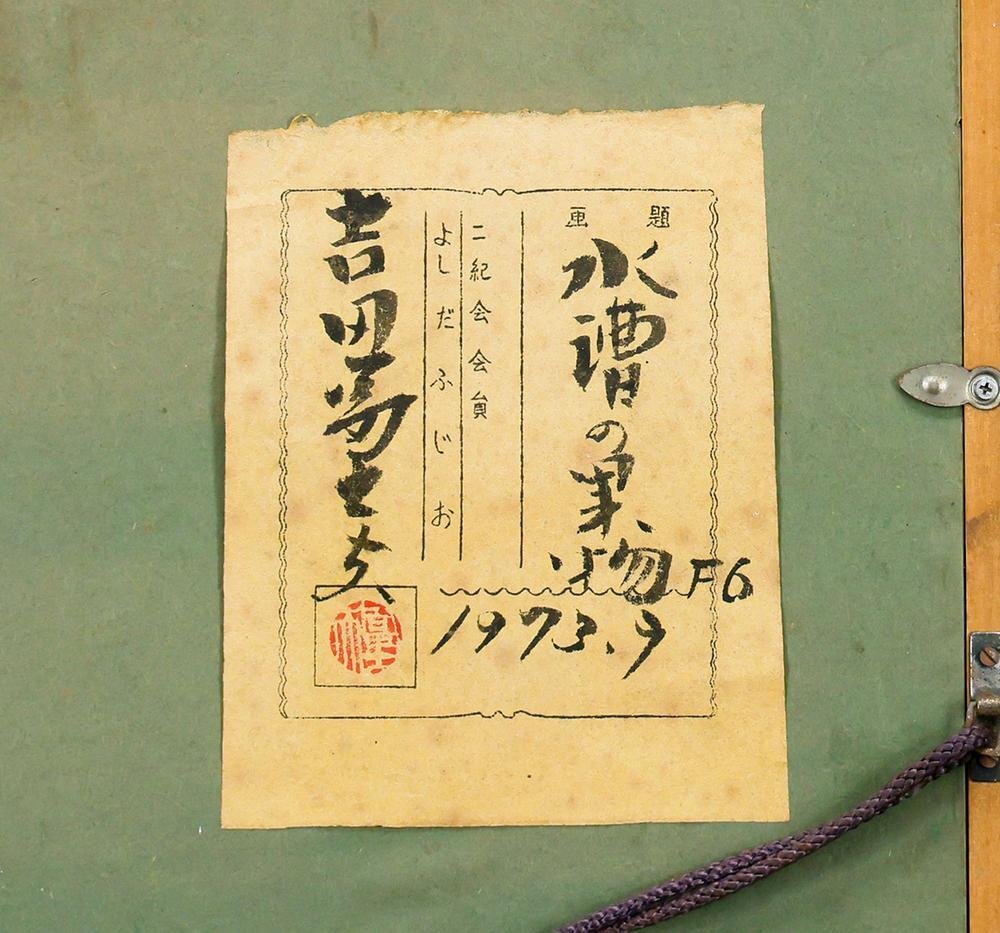 画題
水漕の果物 F6
二紀会会員
よしだふじお
吉田富士夫
1973.9